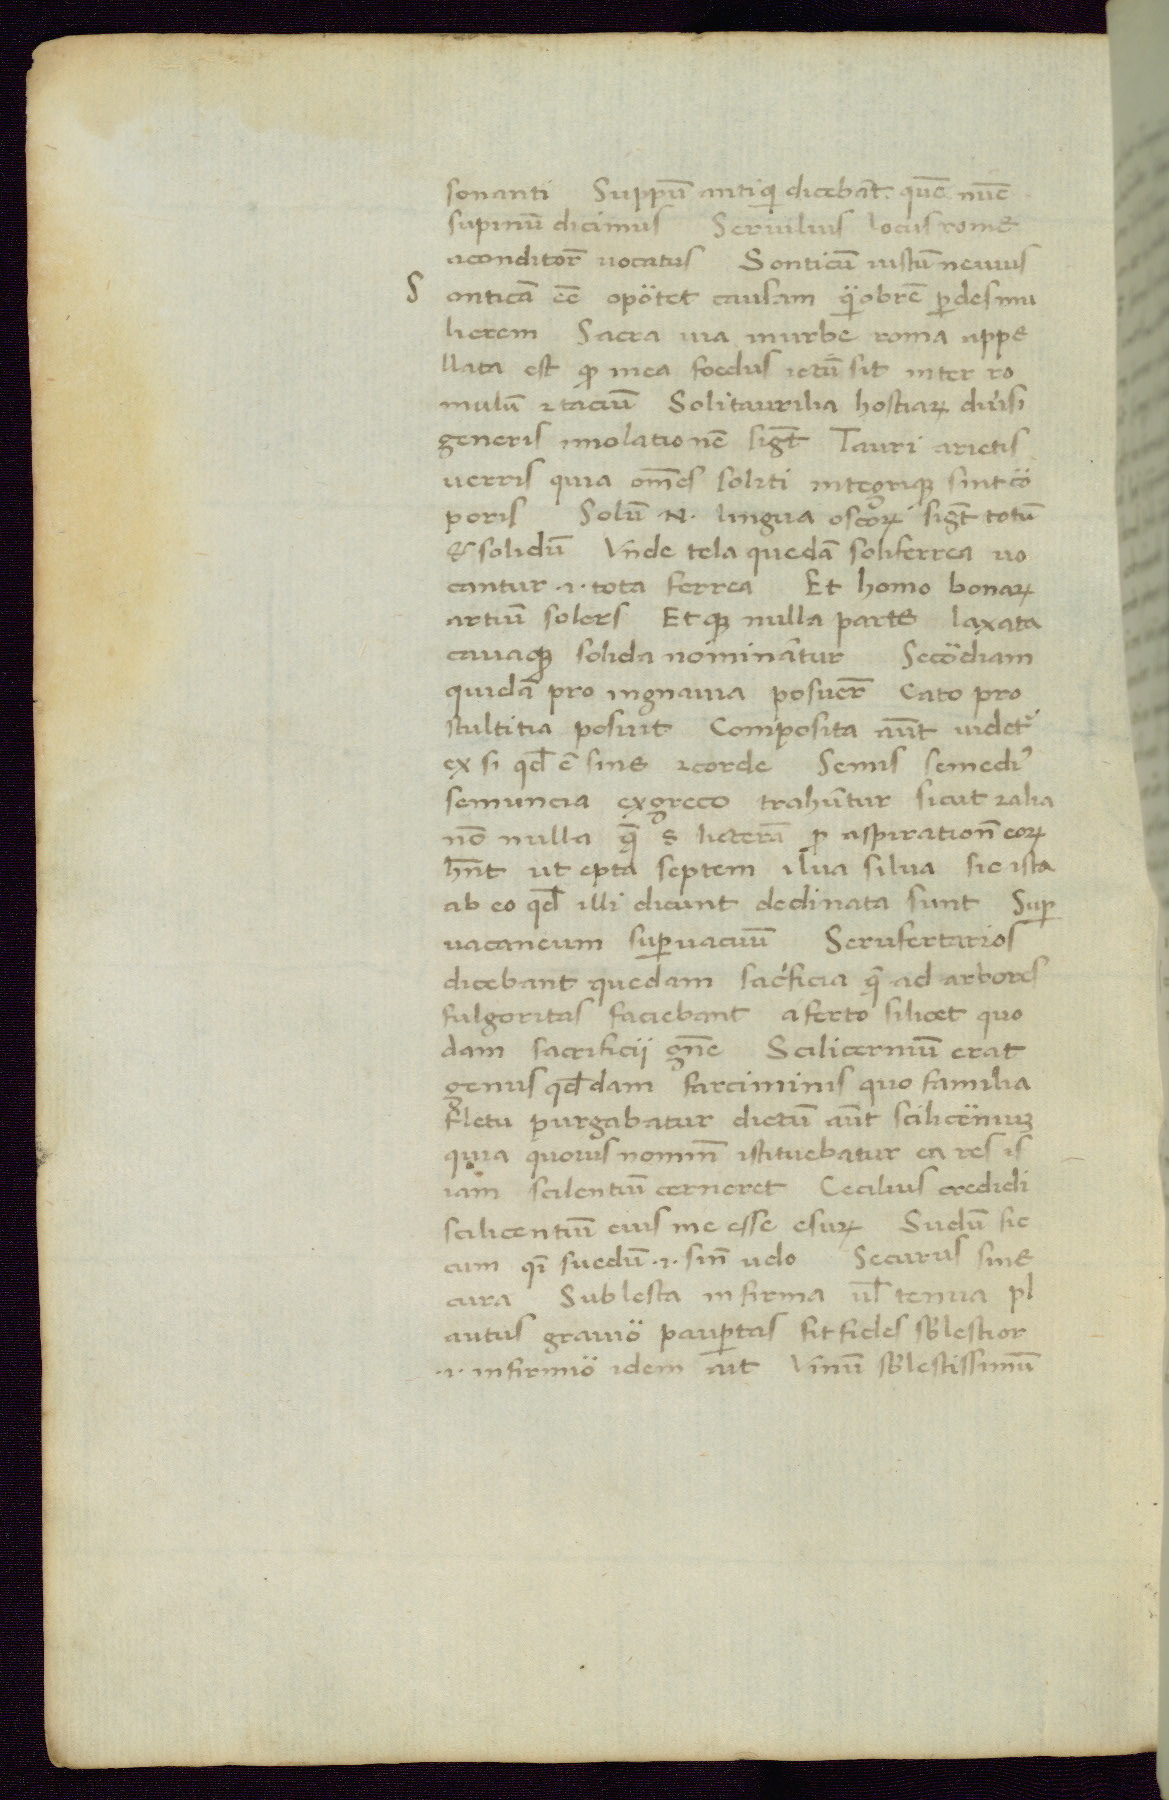 sonanti Suppū antiqi dicebāt. quē nūc
supinū dicimus Seruilius locus rome
aconditor̄ uocatus Sonticū iustū neuius
S onticā eē opȯtet causam qͣobrē ꝑdes mu
lierem Sacra uia inurbe roma appe
llata est ꝙ inea foedus ictū sit inter ro
mulū ⁊tacium Solitaurilia hostiaꝝ diu'si
generis imolationē sigt̄ Tauri arietis
uerris quia om̄es soliti integriqꝫ sint co᷑
poris Solū .N. lingua oscoꝝ sigt̄ totū
& solidū Vnde tela quedā soliferrea uo
cantur .i. tota ferrea Et homo bonaꝝ
artiū solers Et qꝫ nulla parte laxata
cauaqꝫ solida nominātur Seco᷑diam
quidā pro ingnauia posuer̄ Cato pro
stultitia posuit Composita aūt uidet᷑
ex si qd̄ ē sine ⁊corde Semis semedi᷒
semuncia exgreco trahūtur sicut ⁊alia
nō nulla q̄ s litterā ꝓ aspiration̄e eoꝝ
hn̄t ut epta septem ilua silua sic ista
ab eo qd̄ illi dicunt declinata sunt Suꝑ
uacaneum suꝑuacuū Serufertarios
dicebant quedam sac'ficia q̄ ad arbores
fulgoritas faciebant aferto silicet quo
dam sacrificij gn̄e Scilicerniū erat
genus qd̄dam farciminis quo familia
fletu purgabatur dictū aūt scilice᷑niuꝫ
quia quoius nomīn istituebatur ea res is
iam scilentiū cerneret Cecilius credidi
scilicentiū eius me esse esuꝝ Sudū sic
cum qī suedū .i. sin̄ udo Securus sine
cura Sublesta infirma ul̄ tenua pl
autus grauio᷑ pauꝑtas fit fides sb'lestior
.i. infirmio᷑ idem ait Vinū sb'lestissimū